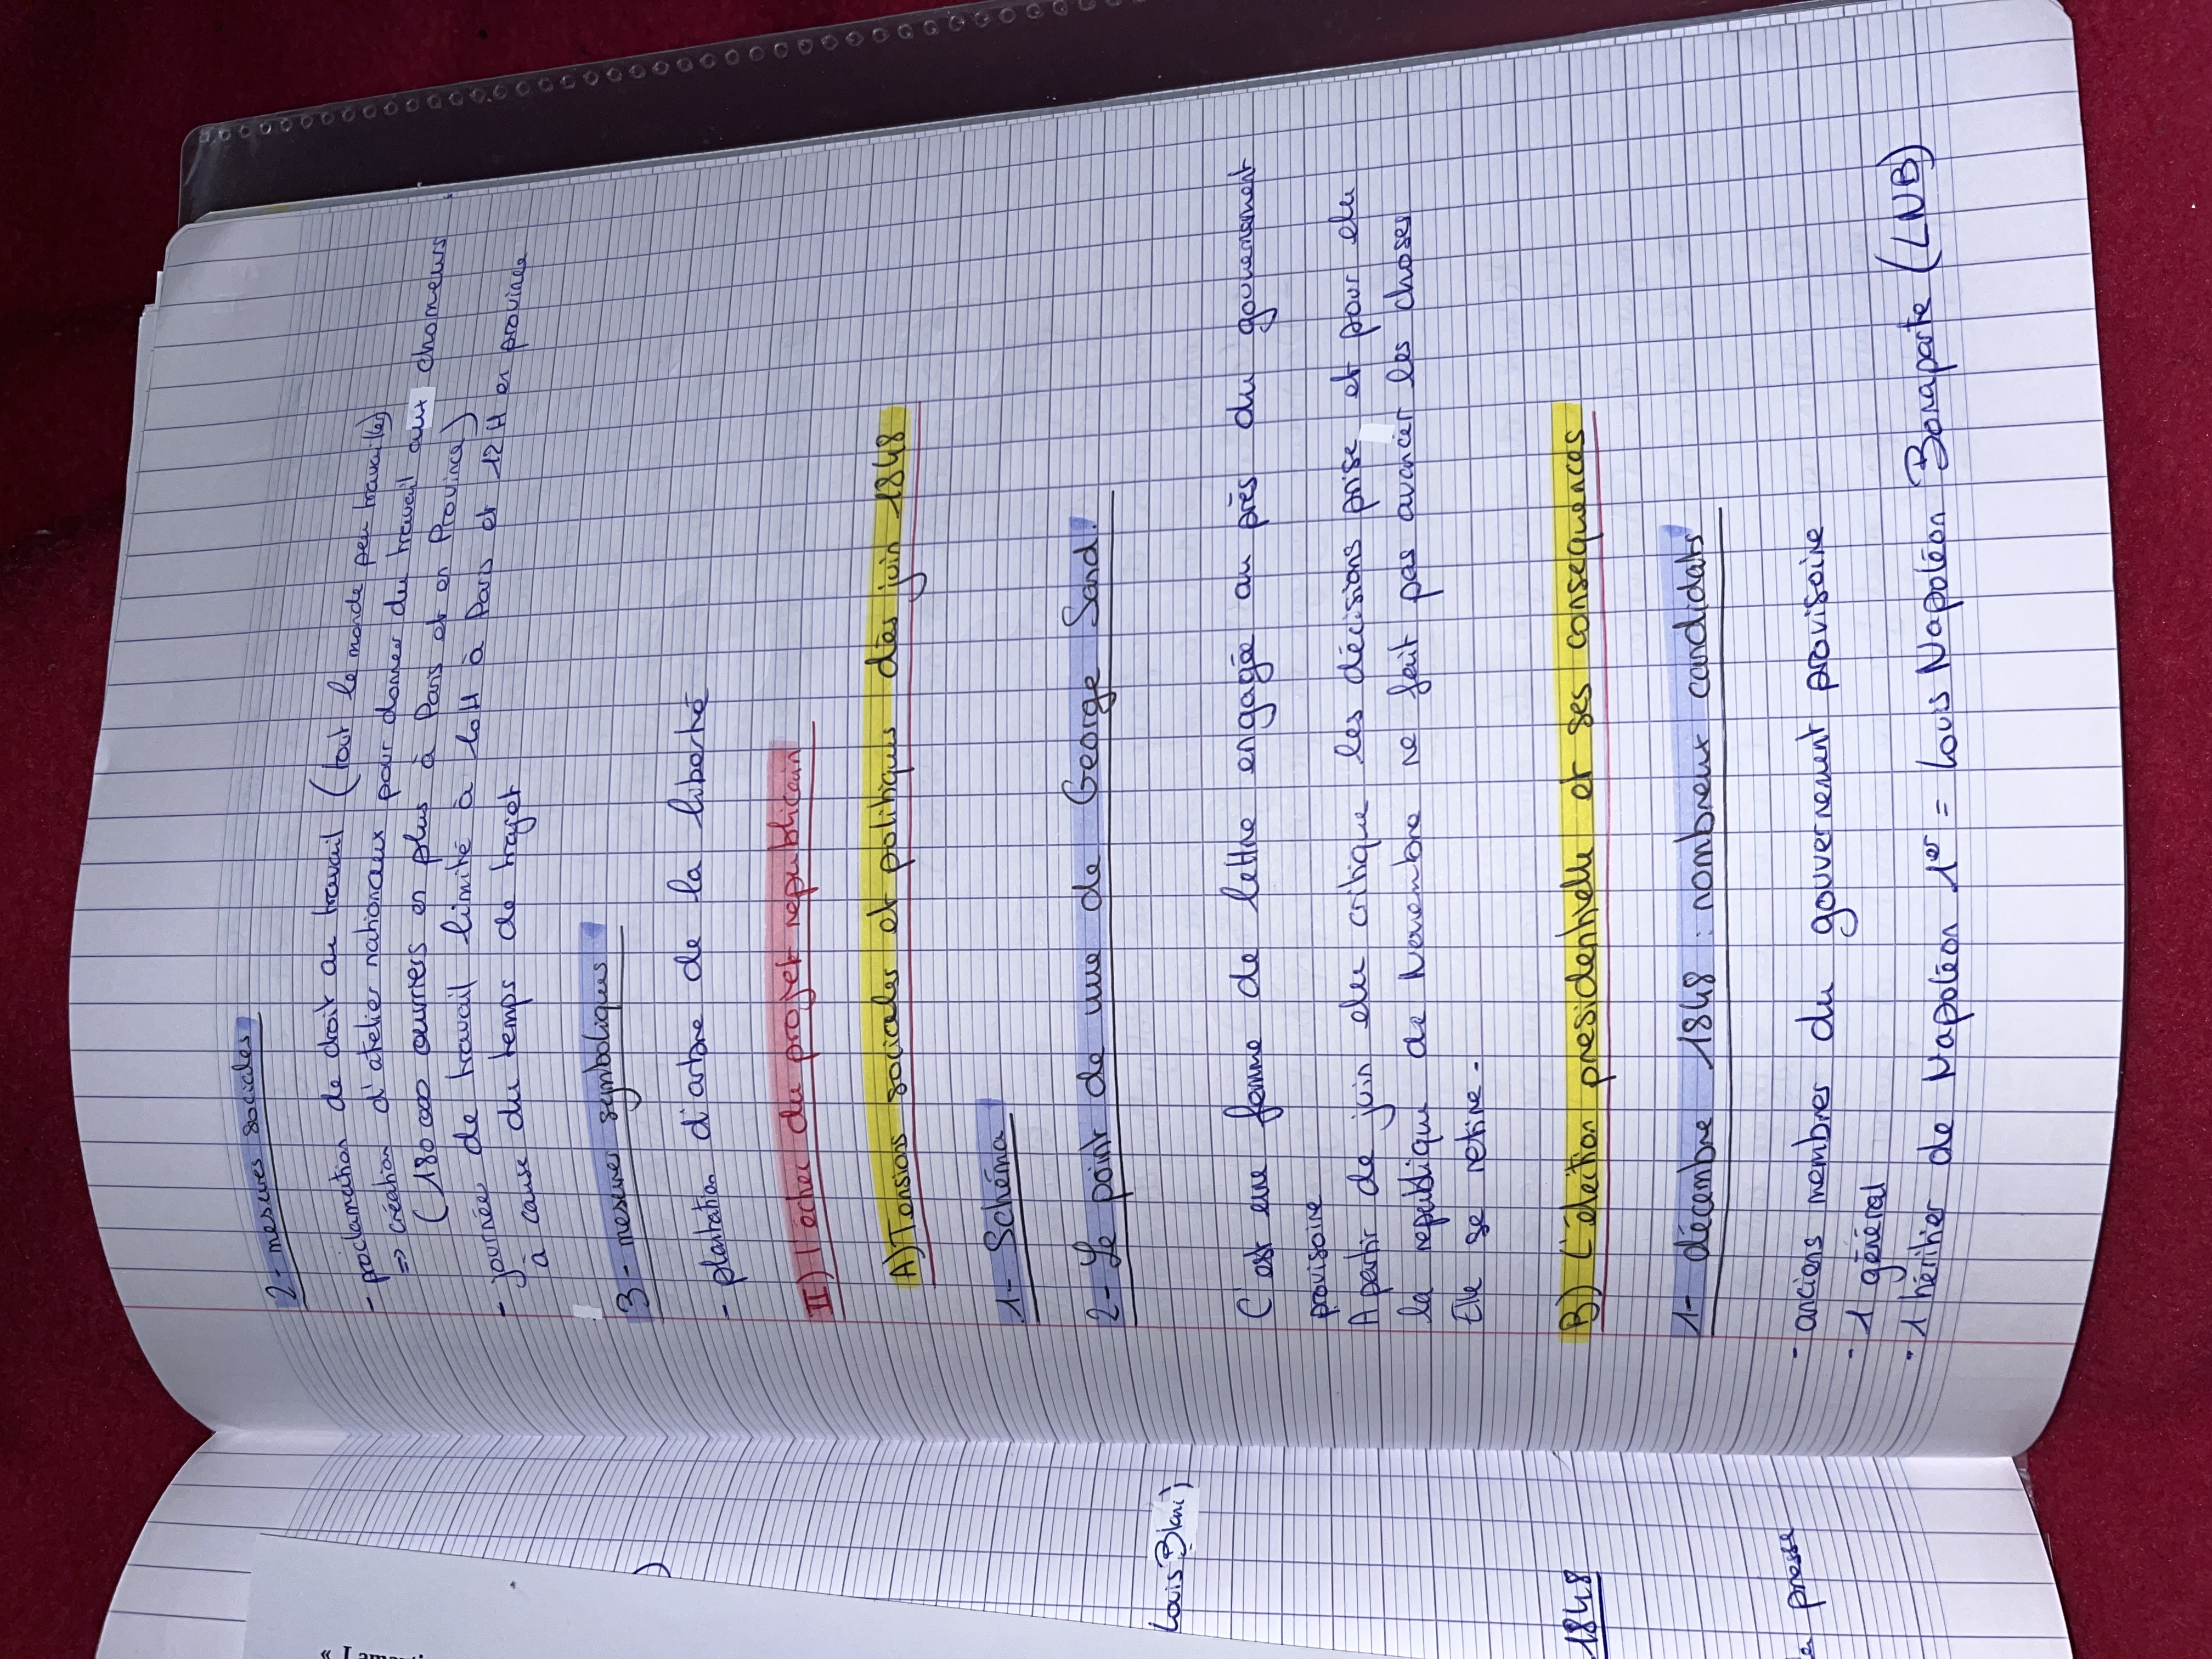 2- mesures sociales
- proclamation de droit au travail (tout le monde peu travailler)
=> création d'atelier nationaux pour donner du travail aux chomeurs
(180 000 ouvriers en plus à Paris et en Province)
- journée de travail limité à 10H à Paris et 12H en province
à cause du temps de trajet
3- mesures symboliques
- plantation d'arbre de la liberté
II) l'échec du projet republicain
A) Tensions sociales et politiques dès juin 1848
1- Schéma
2- Le point de vue de George Sand.
C'est une femme de lettre engagée au près du gouvernement
provisoire
A partir de juin elle critique les décisions prise et pour elle
la republique de Novembre ne fait pas avancer les choses
Elle se retire.
B) L'élection presidentielle et ses consequences
1- décembre 1848 : nombreux candidats
- anciens membres du gouvernement provisoire
- 1 général
- 1 héritier de Napoléon 1er = Louis Napoléon Bonaparte (LNB)
Louis Blanc)
1848
presse
«